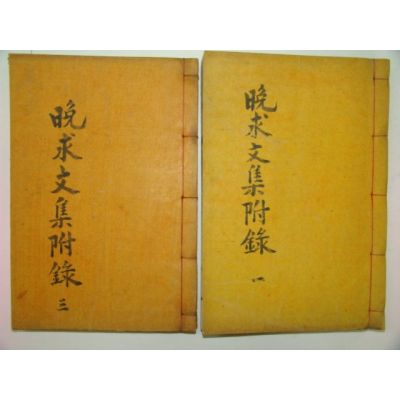 晚求文集附錄
一
晚求文集附錄
三